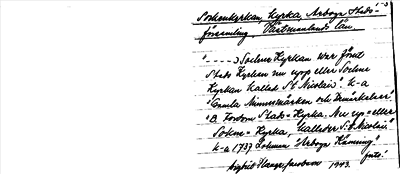 Sockenkyrkan, Kyrka, Arboga Stads-
församling Västmanlands län.
"- - - -) Sochne Kyrkan war förut
Stads Kyrkan nu upp eller Sochne
Kyrkan kallad St Nicolai". h-a
"Gamla Minnesmärken och
"B. Fordom Stads-Kyrka. Nu up- eller
Sokne-Kyrka, kallades S:t Nicolai."
h-a 1737 "Arboga Känning"
1943.